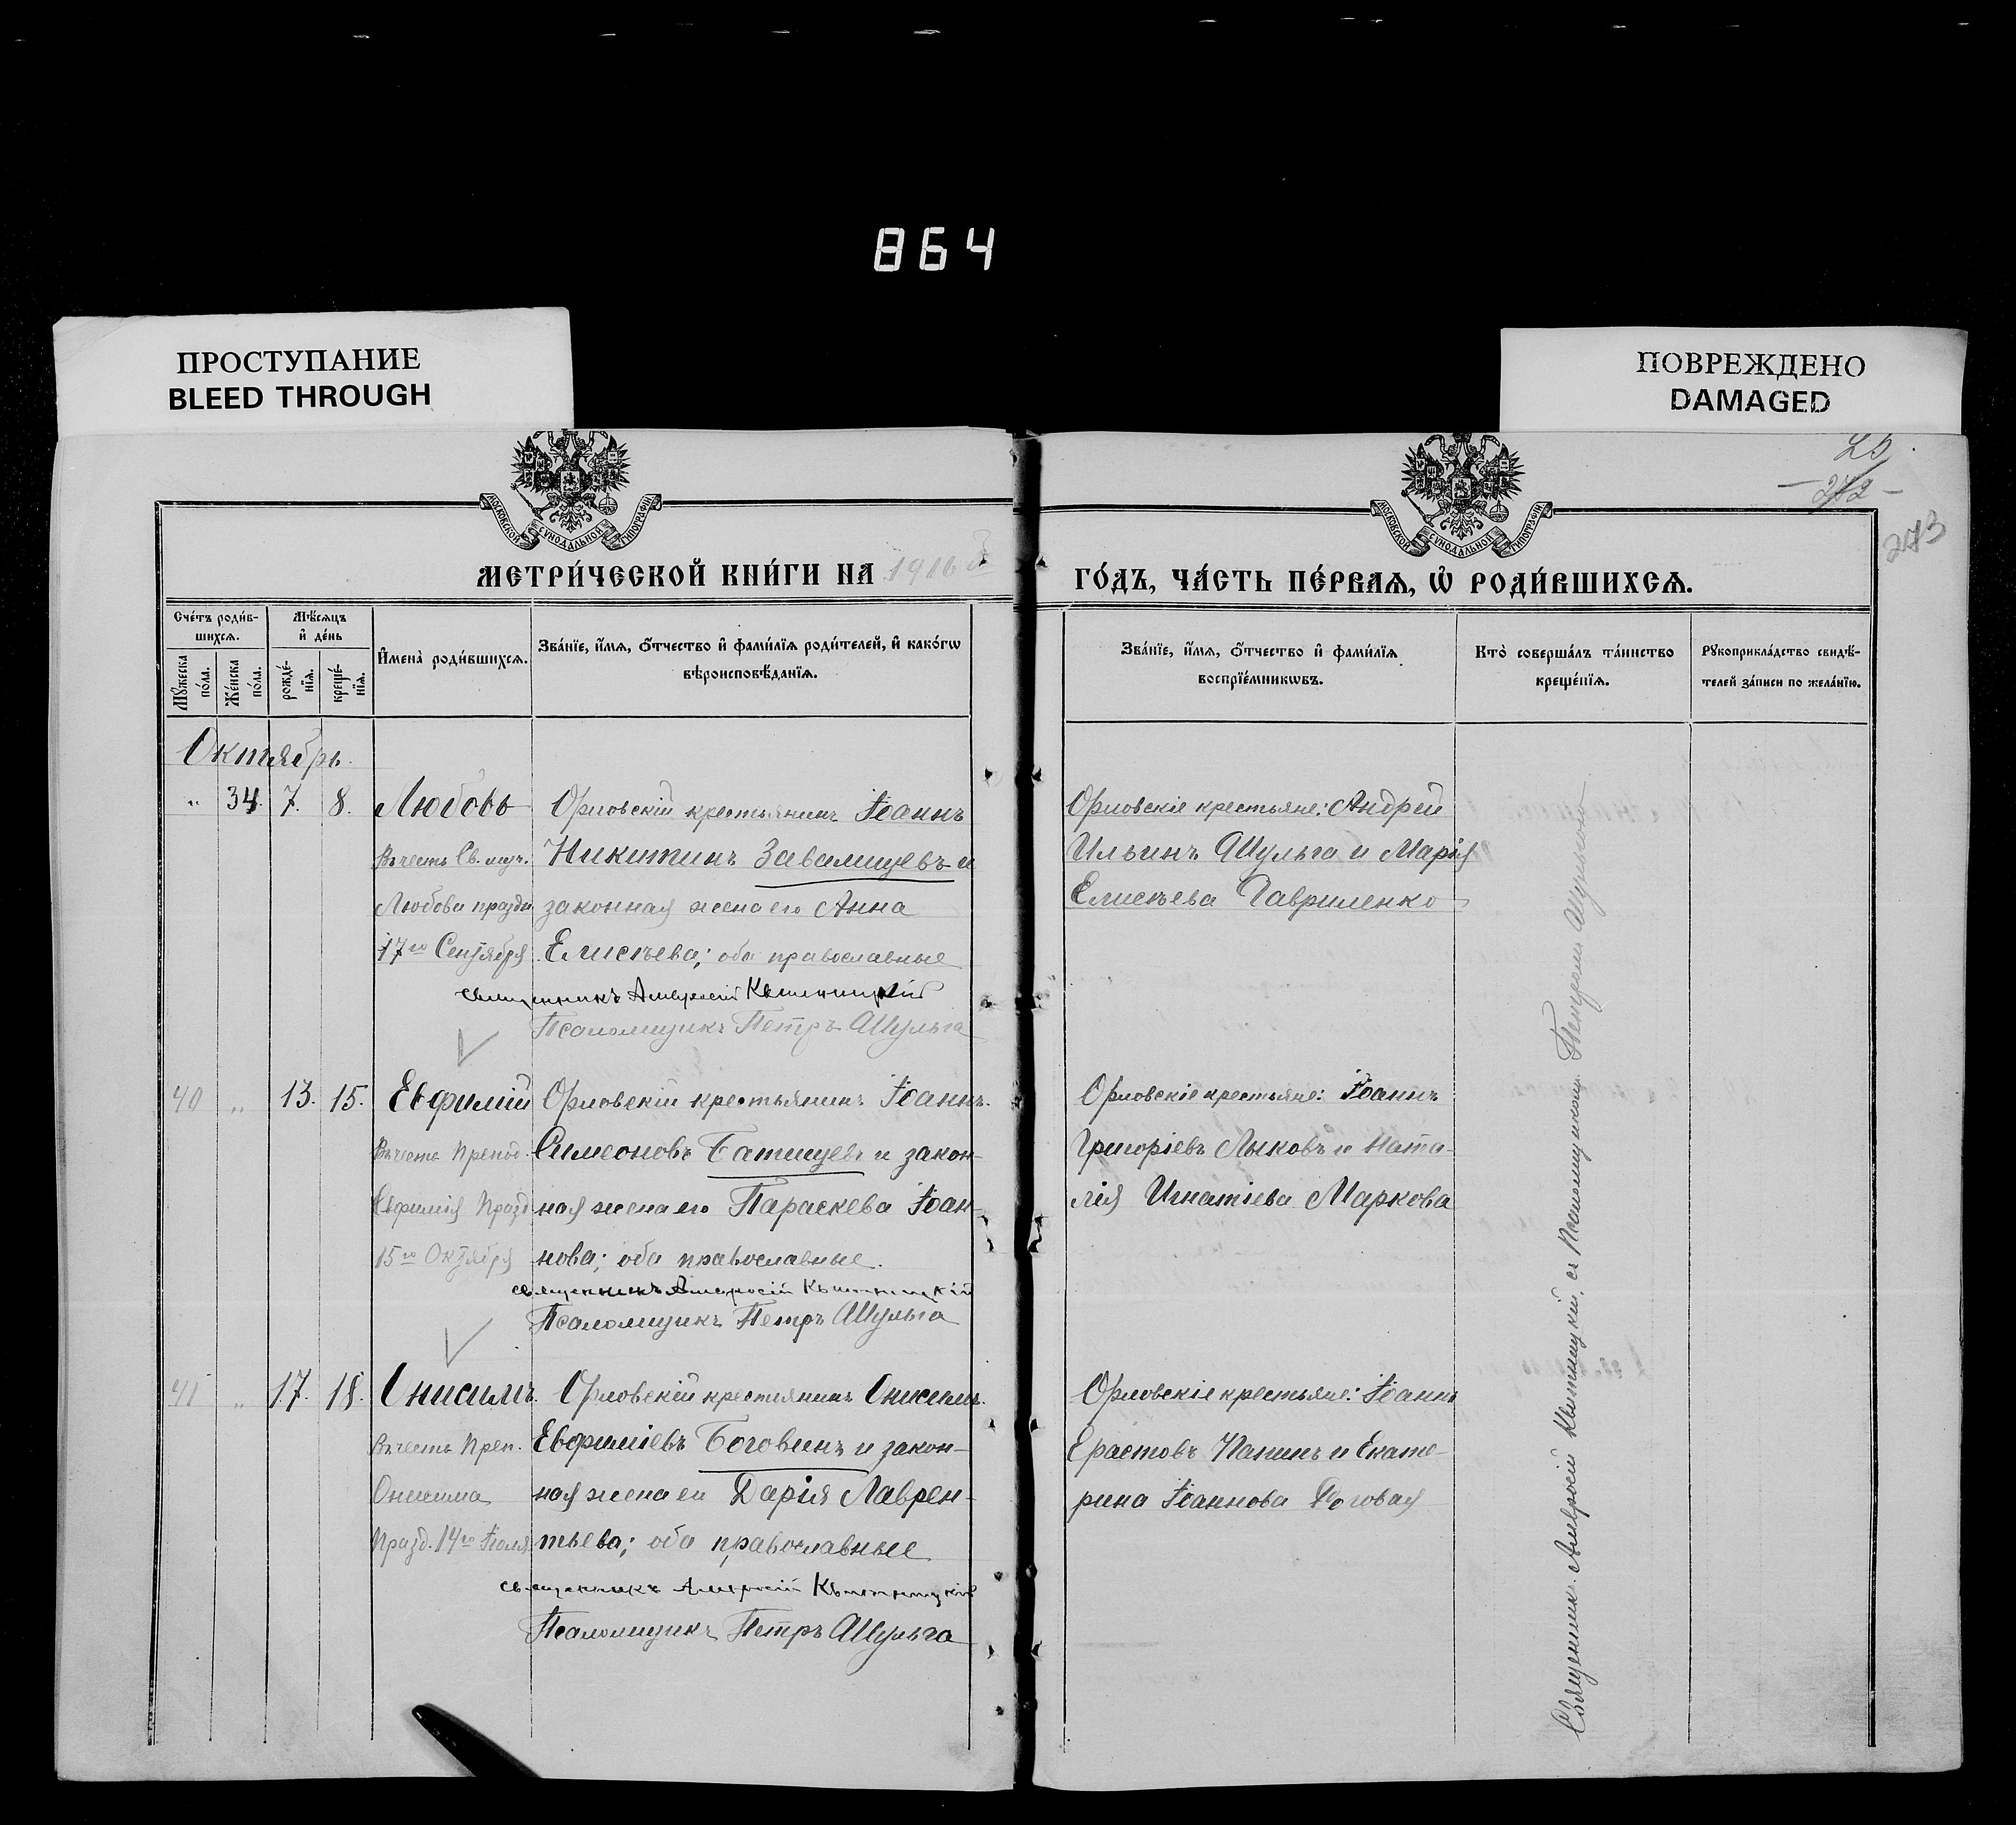 864
ПРОСТУПАНИЕ
BLEED THROUGH
ПОВРЕЖДЕНО
DAMAGED
25
— 272 —
273
МОСКОВСКОЙ СѴНОДАЛЬНОЙ ТИПОГРАФІИ
МОСКОВСКОЙ СѴНОДАЛЬНОЙ ТИПОГРАФІИ
МЕТРИ́ЧЕСКОЙ КНИ́ГИ НА 1916й
ГО́ДЪ, ЧА́СТЬ ПЕ́РВАѦ, Ѡ҆ РОДИ́ВШИХСѦ.
Сче́тъ роди́в-
шихсѧ.
Мꙋ́жеска по́ла.
Же́нска по́ла.
Мѣ́сѧцъ
и҆ де́нь
рожде́-
нїѧ.
креще́-
нїѧ.
И҆мена̀ роди́вшихсѧ.
Зва́нїе, и҆́мѧ, ѻ҆́тчество и҆ фами́лїѧ роди́телей, и҆ како́гѡ
вѣроисповѣ́данїѧ.
Зва́нїе, и҆́мѧ, ѻ҆́тчество и҆ фами́лїѧ
воспрїе́мникѡвъ.
Кто̀ соверша́лъ та́инство
креще́нїѧ.
Рꙋкоприкла́дство свидѣ́-
телей за́писи по жела́нїю.
Октябрь.
" 34. 7. 8. Любовь
Въ честь Св. муч.
Любови праздн
17го Сентября
Орловскій крестьянинъ Іоаннъ
Никитинъ Завалищевъ и
законная жена его Анна
Елисѣева; оба православные
священникъ Амвросій Квятницкій
Псаломщикъ Петръ Шульга
Орловскіе крестьяне: Андрей
Ильинъ Шульга и Марія
Елисѣева Гавриленко
40 " 13. 15. Евфимій
Въ честь Препод.
Евфимія Празд
15го Октября
Орловскій крестьянинъ Іоаннъ.
Симеоновъ Батищевъ и закон-
ная жена его Параскева Іоан-
нова; оба православные.
священникъ Амвросій Квятницкій
Псаломщикъ Петръ Шульга
Орловскіе крестьяне: Іоаннъ
Григоріевъ Лыковъ и Ната-
лія Игнатіева Маркова
41 " 17. 18. Онисимъ.
Въ честь Преп.
Онисима
Празд. 14го Іюля
Орловскій крестьянинъ Онисимъ.
Евфиміевъ Боговинъ и закон-
ная жена его Дарія Лаврен-
тьева; оба православные
священникъ Амвросій Квятницкій
Псаломщикъ Петръ Шульга
Орловскіе крестьяне: Іоаннъ
Ерастовъ Папинъ и Екате-
рина Іоаннова
Священникъ Амвросій Квятницкій, съ Псаломщикомъ Петромъ Шульгою